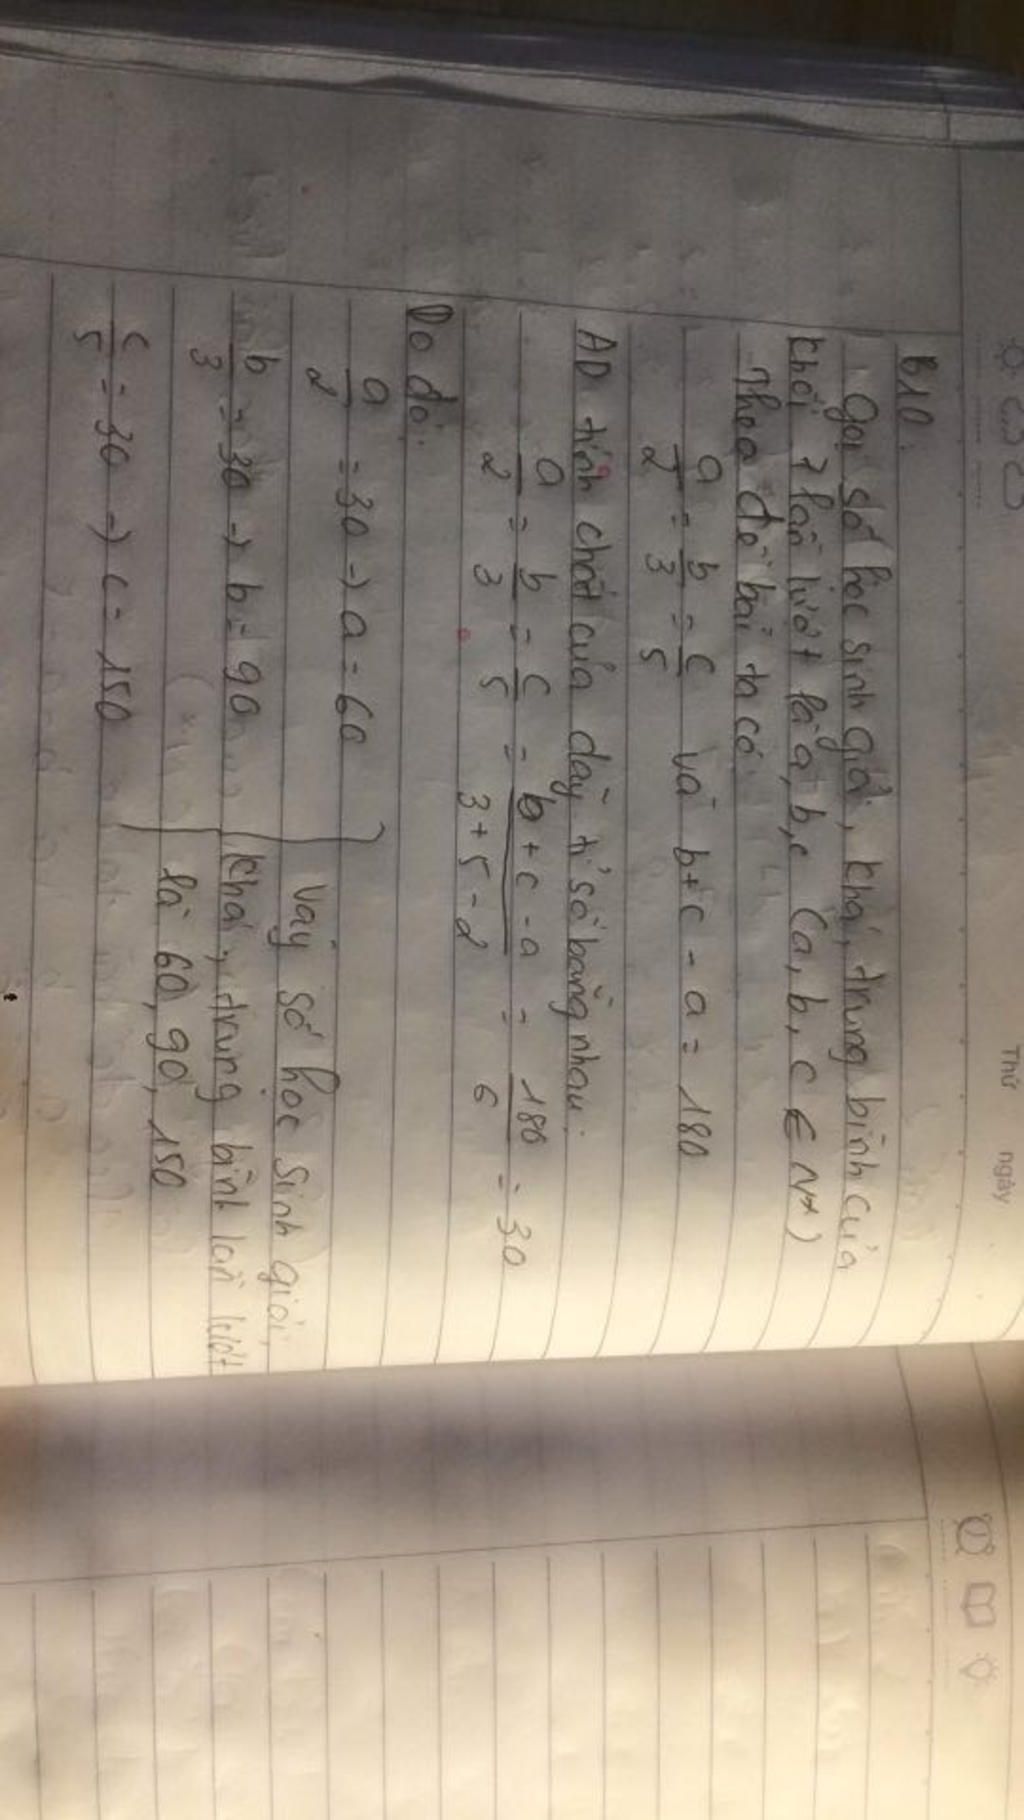 Thứ ngày
B10:
Gọi số học sinh giỏi, khá, trung bình của
khối 7 lần lượt là a, b, c (a, b, c ∈ N*)
Theo đề bài ta có
a/2 = b/3 = c/5 và b+c-a = 180
AD tính chất của dãy tỉ số bằng nhau:
a/2 = b/3 = c/5 = b+c-a/3+5-2 = 180/6 = 30
Do đó:
a/2 = 30 → a = 60
b/3 = 30 → b = 90
c/5 = 30 → c = 150
Vậy số học sinh giỏi,
khá, trung bình lần lượt
là 60, 90, 150